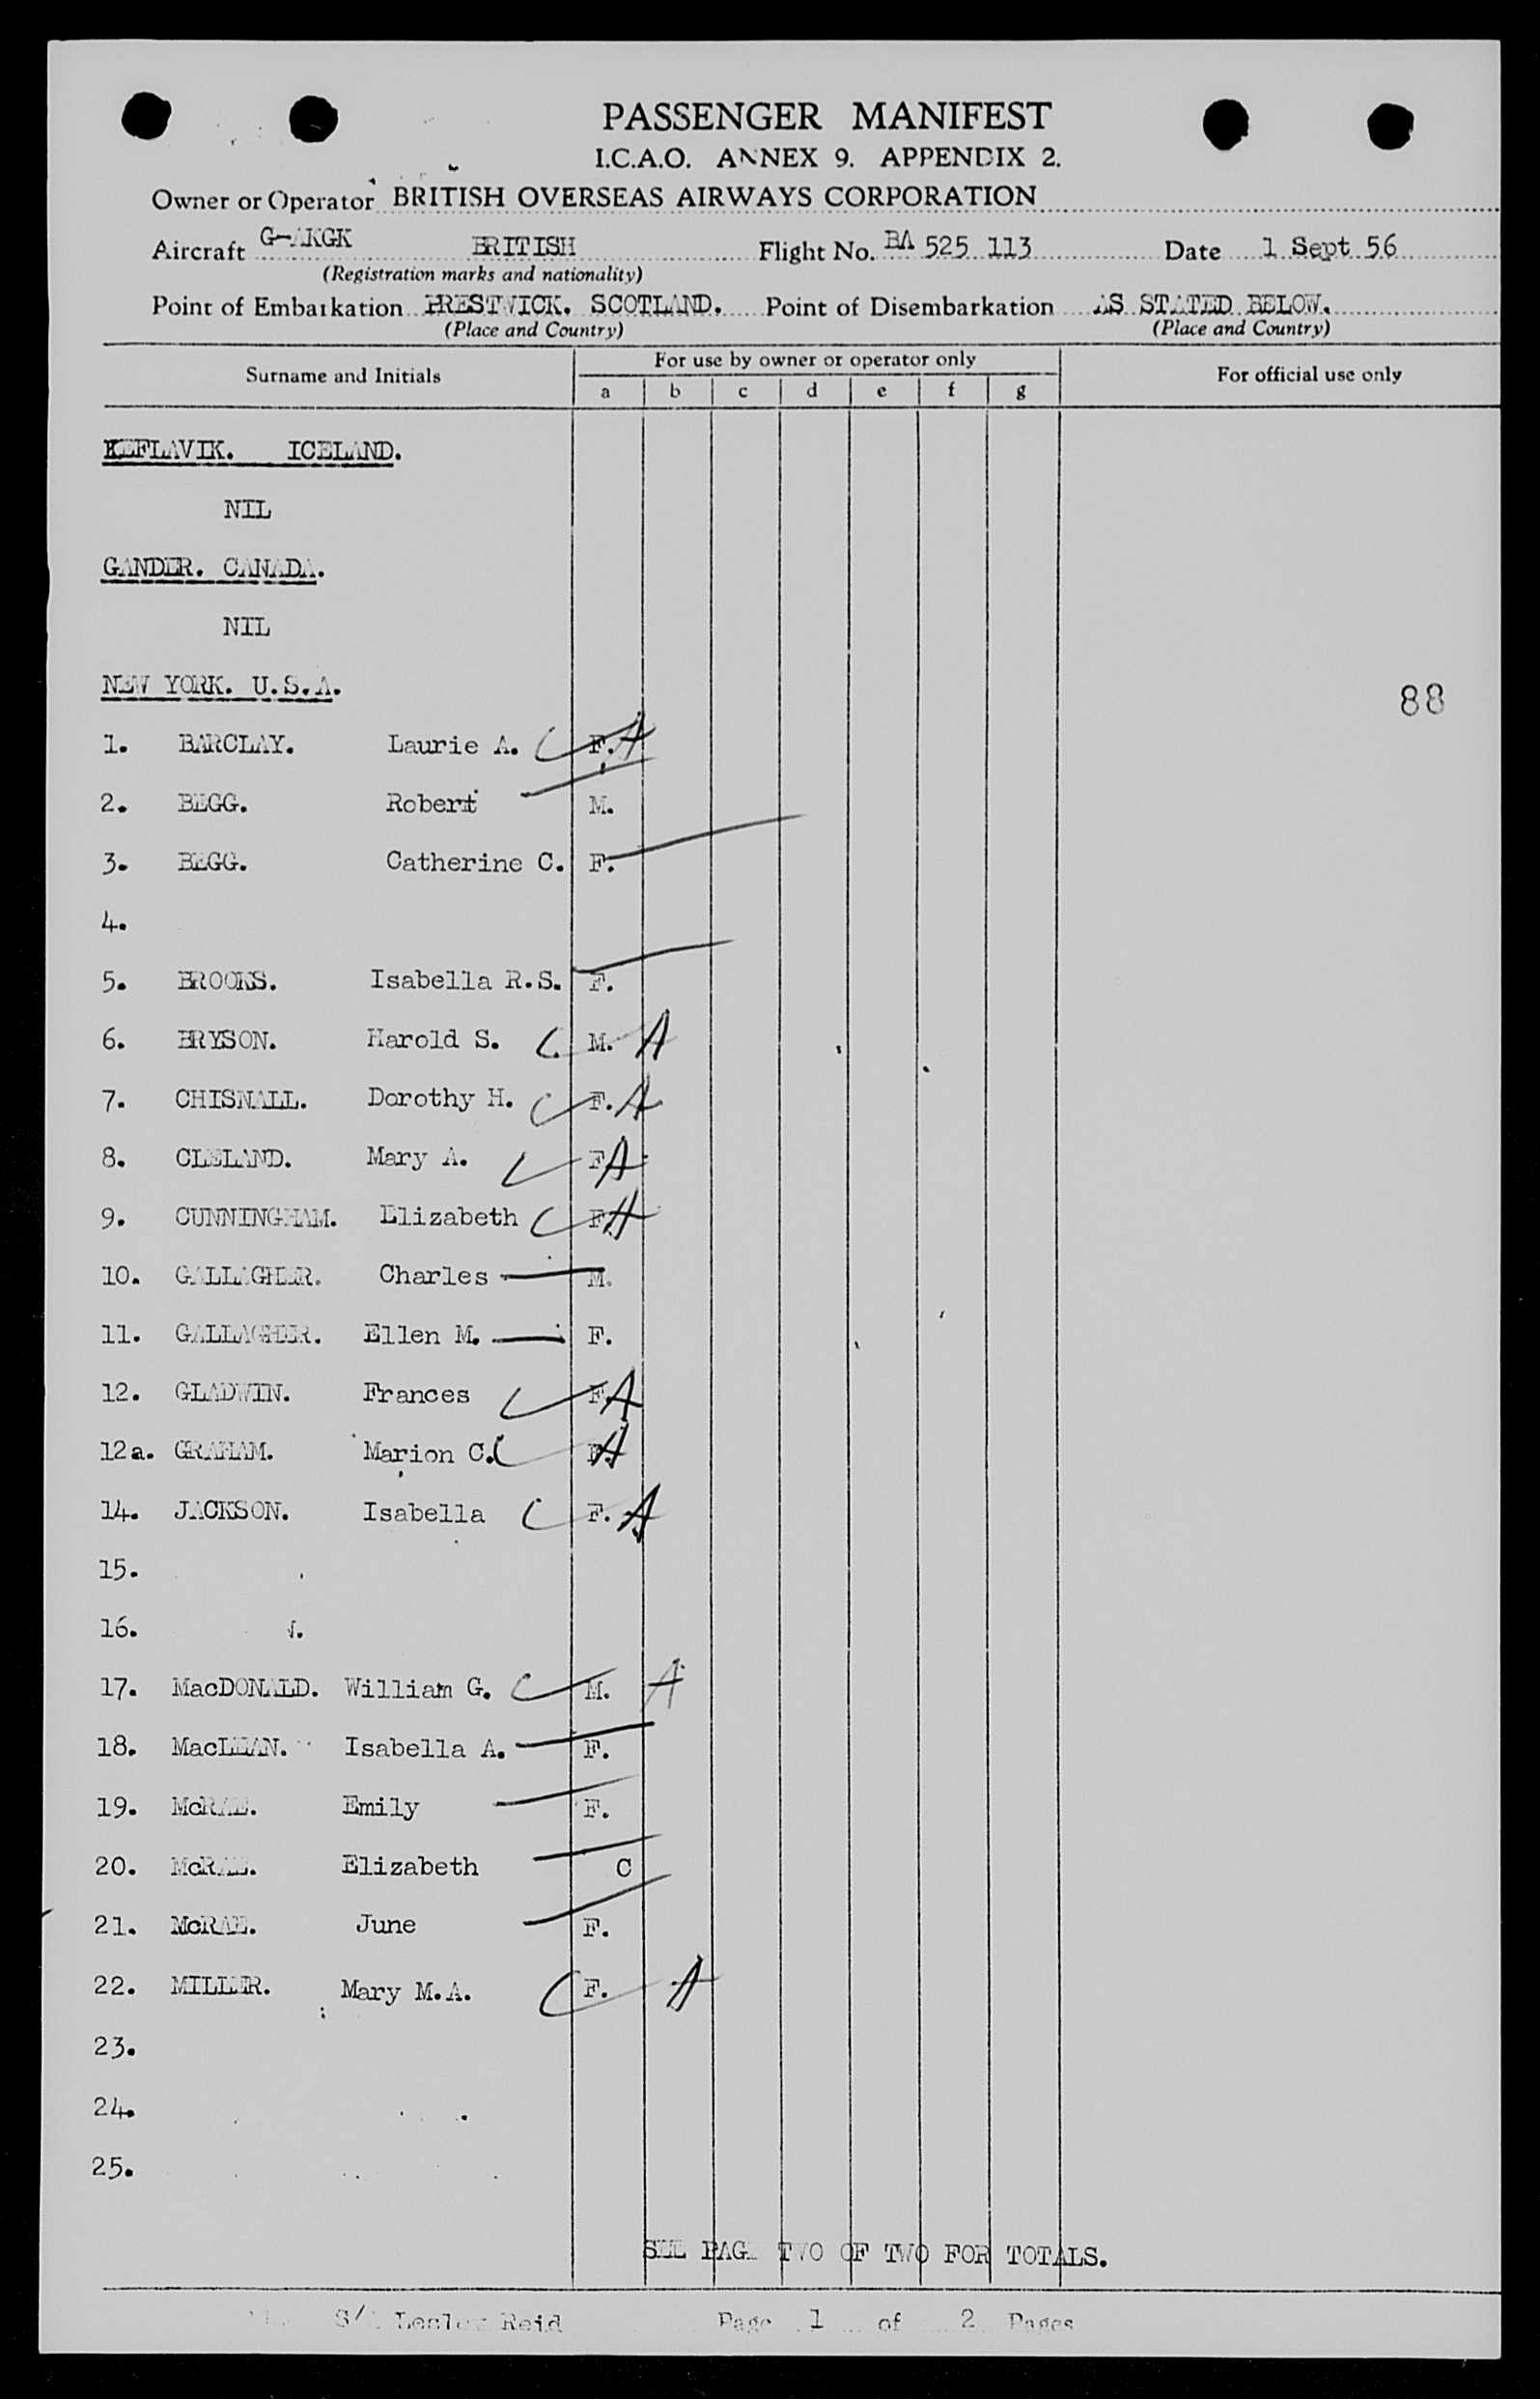 PASSENGER MANIFEST
I.C.A.O. ANNEX 9. APPENDIX 2.
Owner or Operator BRITISH OVERSEAS AIRWAYS CORPORATION
Aircraft G-AKGK BRITISH Flight No. BA 525 113 Date 1 Sept 56
(Registration marks and nationality)
Point of Embarkation PRESTWICK. SCOTLAND. Point of Disembarkation AS STATED BELOW.
(Place and Country) (Place and Country)
Surname and Initials For use by owner or operator only For official use only
a b c d e f g
KEFLAVIK. ICELAND.
NIL
GANDER. CANADA.
NIL
NEW YORK. U.S.A.
88
1. BARCLAY. Laurie A. F. A
2. BEGG. Robert M.
3. BEGG. Catherine C. F.
4.
5. BROOKS. Isabella R.S. F.
6. BRYSON. Harold S. M. A
7. CHISNALL. Dorothy H. F. A
8. CLELAND. Mary A. F A
9. CUNNINGHAM. Elizabeth F A
10. GALLAGHER. Charles M.
11. GALLAGHER. Ellen M. F.
12. GLADWIN. Frances F A
12a. GRAHAM. Marion C. F. A
14. JACKSON. Isabella F. A
15.
16.
17. MacDONALD. William G. M. A
18. MacLEAN. Isabella A. F.
19. McRAE. Emily F.
20. McRAE. Elizabeth C
21. McRAE. June F.
22. MILLER. Mary M.A. F. A
23.
24.
25.
SEE PAGE TWO OF TWO FOR TOTALS.
Reid Page 1 of 2 Pages